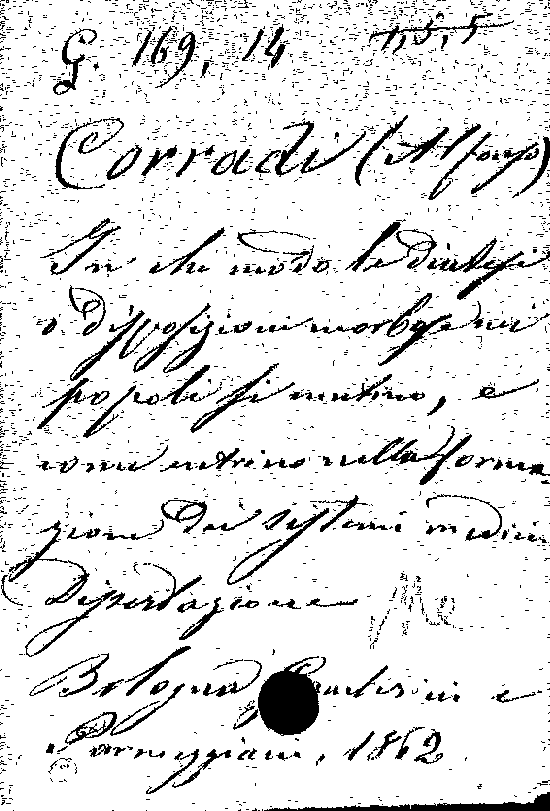 G. 169, 14 1, 5, 5
Corradi (Alfonso)
In che modo le diatesi
o disposizioni morbose nei
popoli si mutino, e
come entrino nella forma-
zione dei sistemi medici
Dissertazione Me
Bologna, Gamberini e
Parmeggiani, 1862